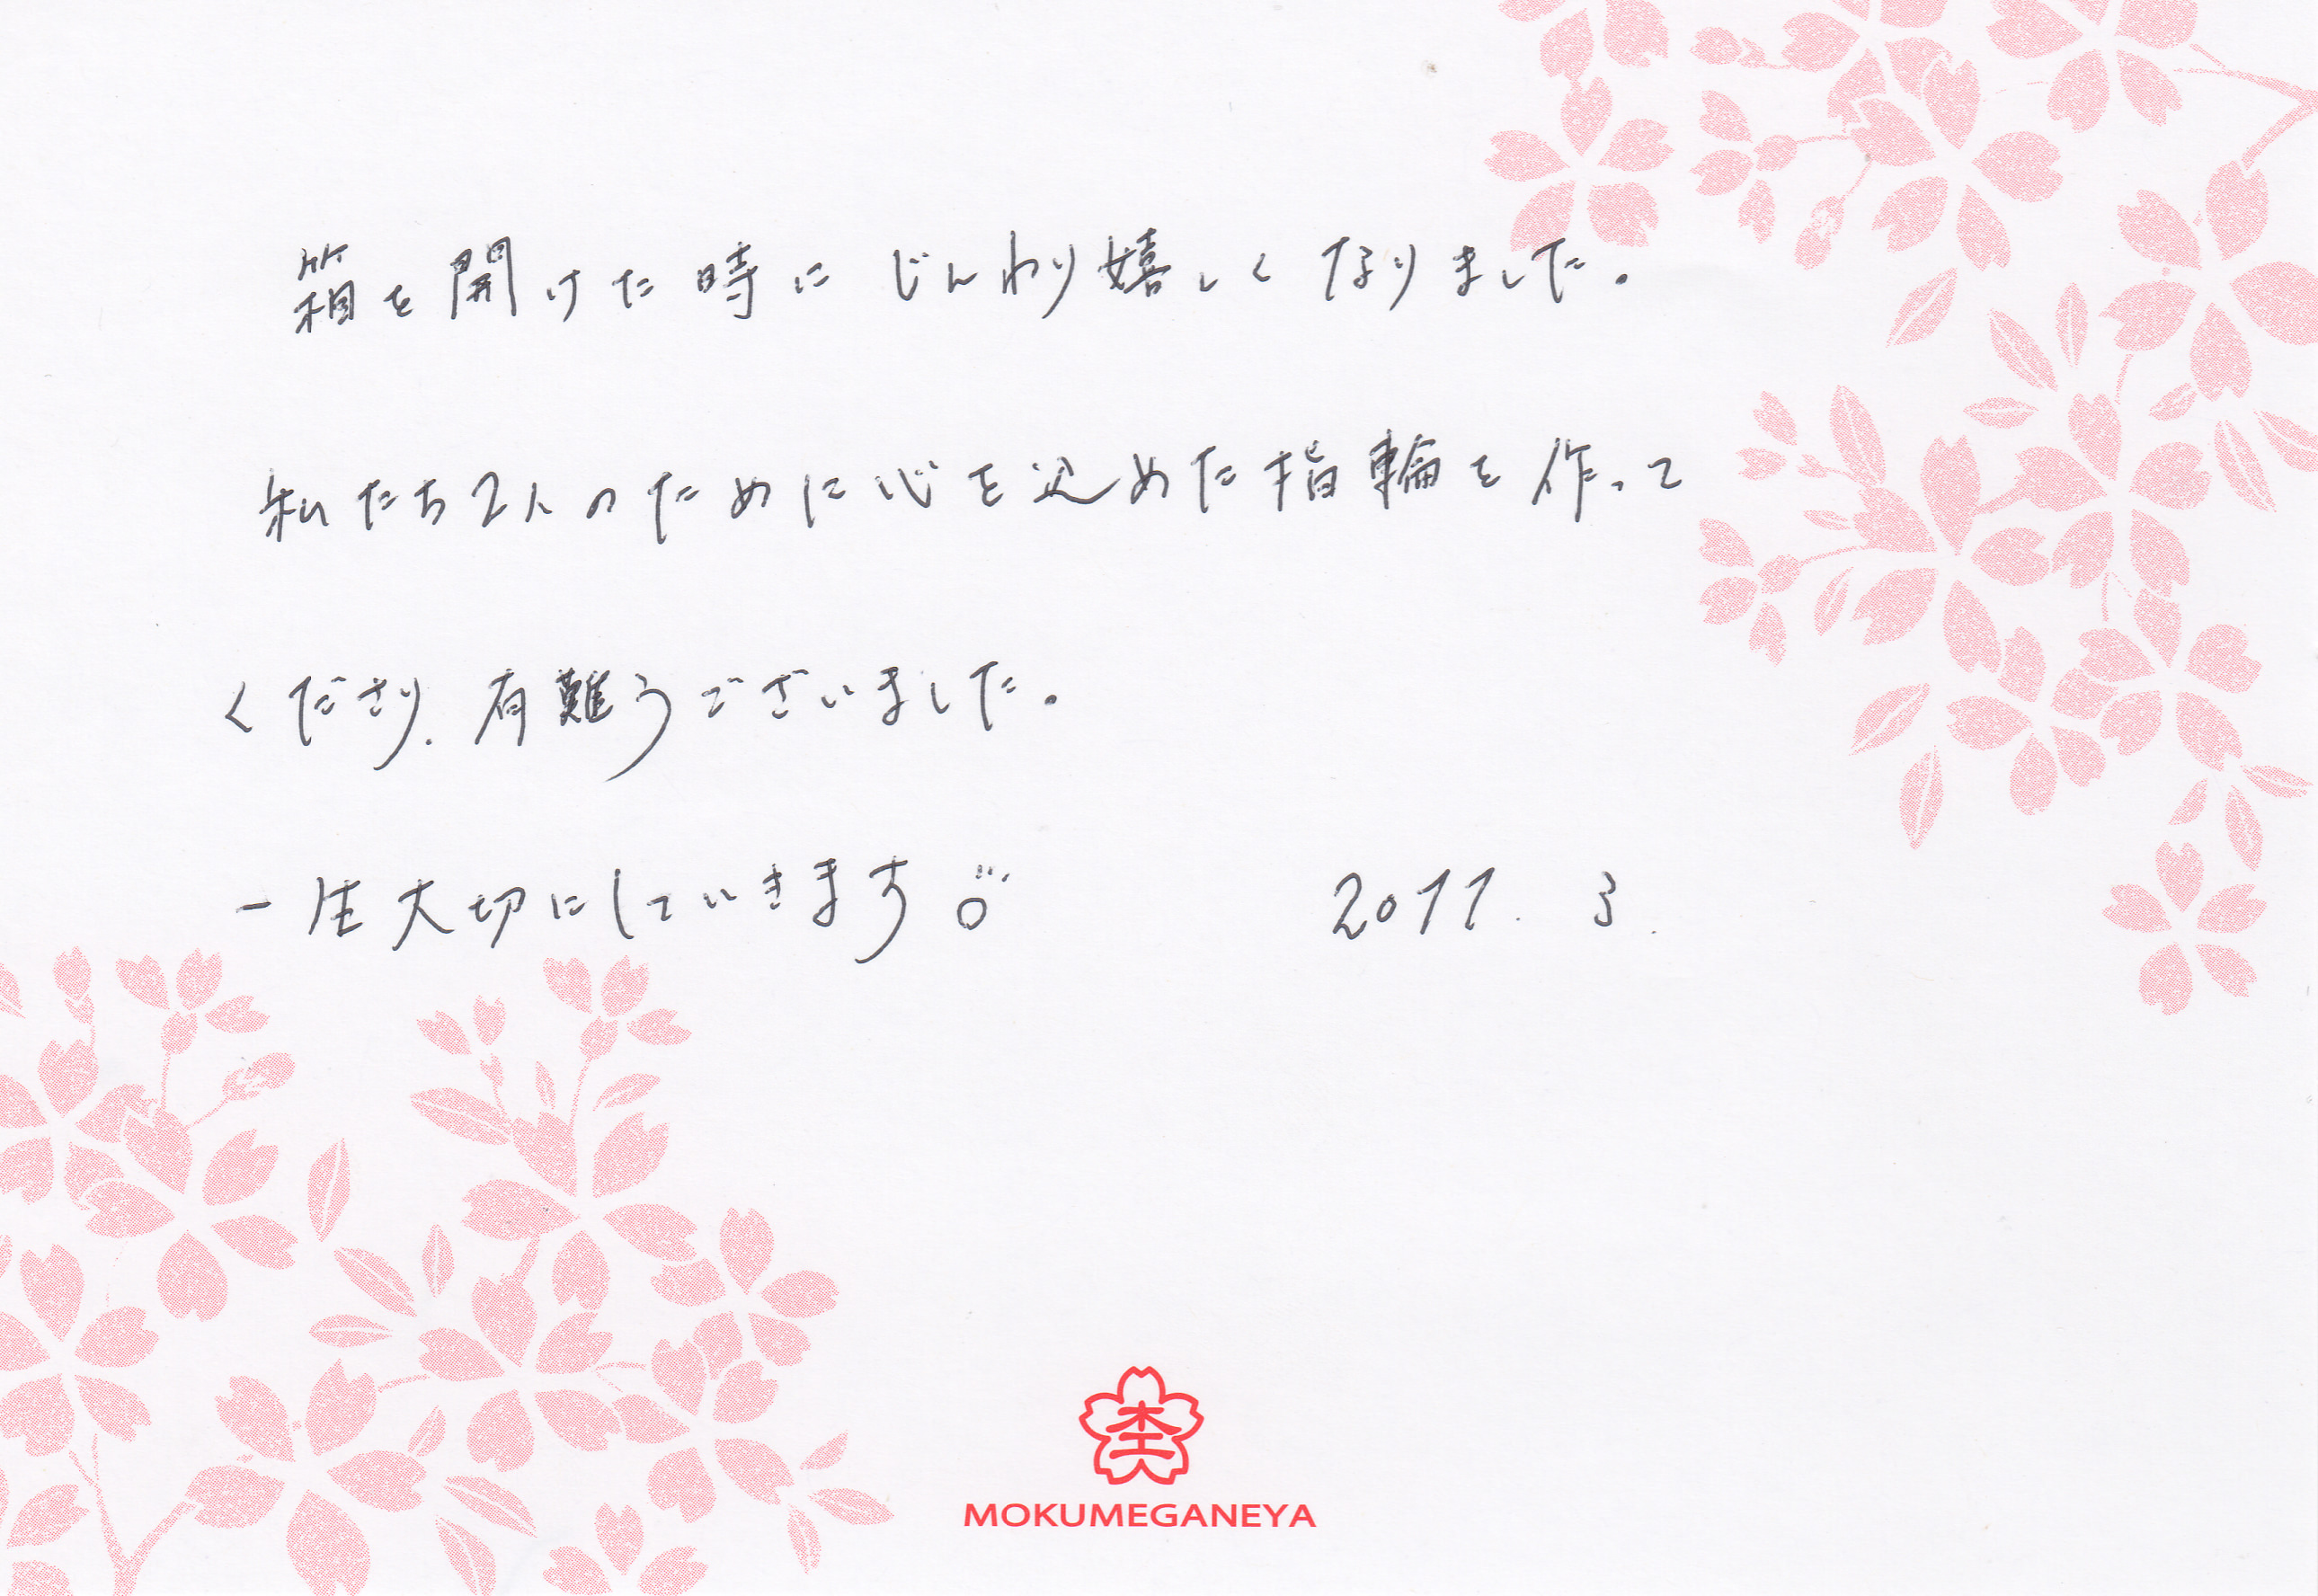 箱を開けた時にじんわり嬉しくなりました。
私たち2人のために心を込めた指輪を作って
くださり、有難うございました。
一生大切にしていきます
2011. 3.
MOKUMEGANEYA